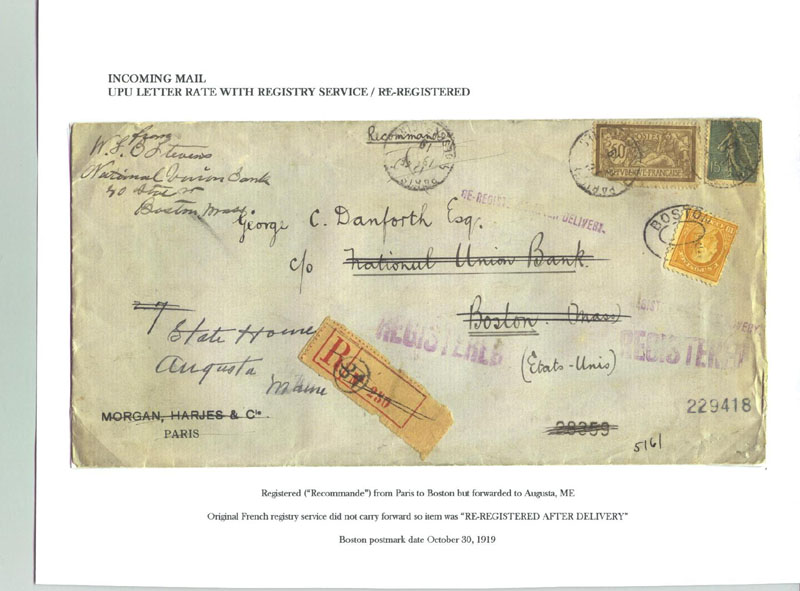 INCOMING MAIL
UPU LETTER RATE WITH REGISTRY SERVICE / RE-REGISTERED
from
W. S. B Stevens
National Union Bank
40 State St
Boston Mass
Recommande
PARIS
50
POSTES
RE-REGISTERED AFTER DELIVERY.
BOSTON
George C. Danforth Esq.
c/o National Union Bank.
Boston. (Mass)
(Etats-Unis)
State House
Augusta
Maine
REGISTERED
REGISTERED
R
MORGAN, HARJES & Cie
PARIS
229418
28359
5161
Registered ("Recommande") from Paris to Boston but forwarded to Augusta, ME
Original French registry service did not carry forward so item was "RE-REGISTERED AFTER DELIVERY"
Boston postmark date October 30, 1919